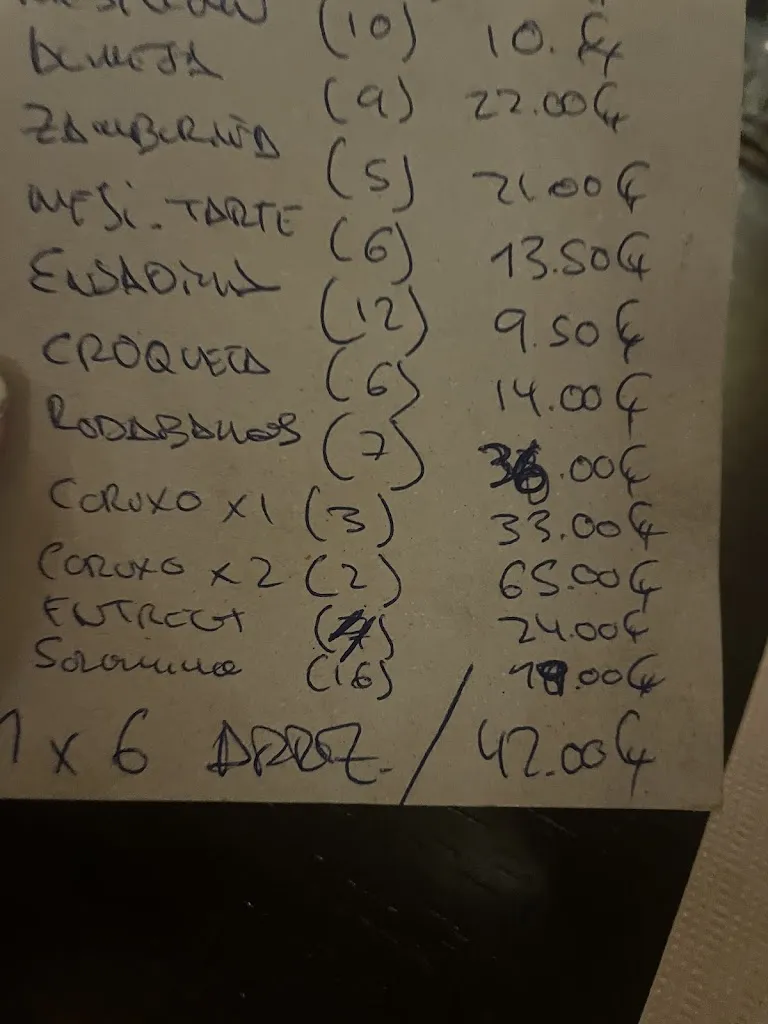 (10) 10. €
ALMEJA (9) 22.00€
ZAMBURIÑA (5) 21.00€
MESi. TARTE (6) 13.50€
ENSADILLA (12) 9.50€
CROQUETA (6) 14.00€
RODABALLOS (7) 36.00€
CORUXO x1 (3) 33.00€
CORUXO x2 (2) 65.00€
ENTRECOT (4) 24.00€
Solomillo (16) 19.00€
1 x 6 ARROZ. / 42.00€